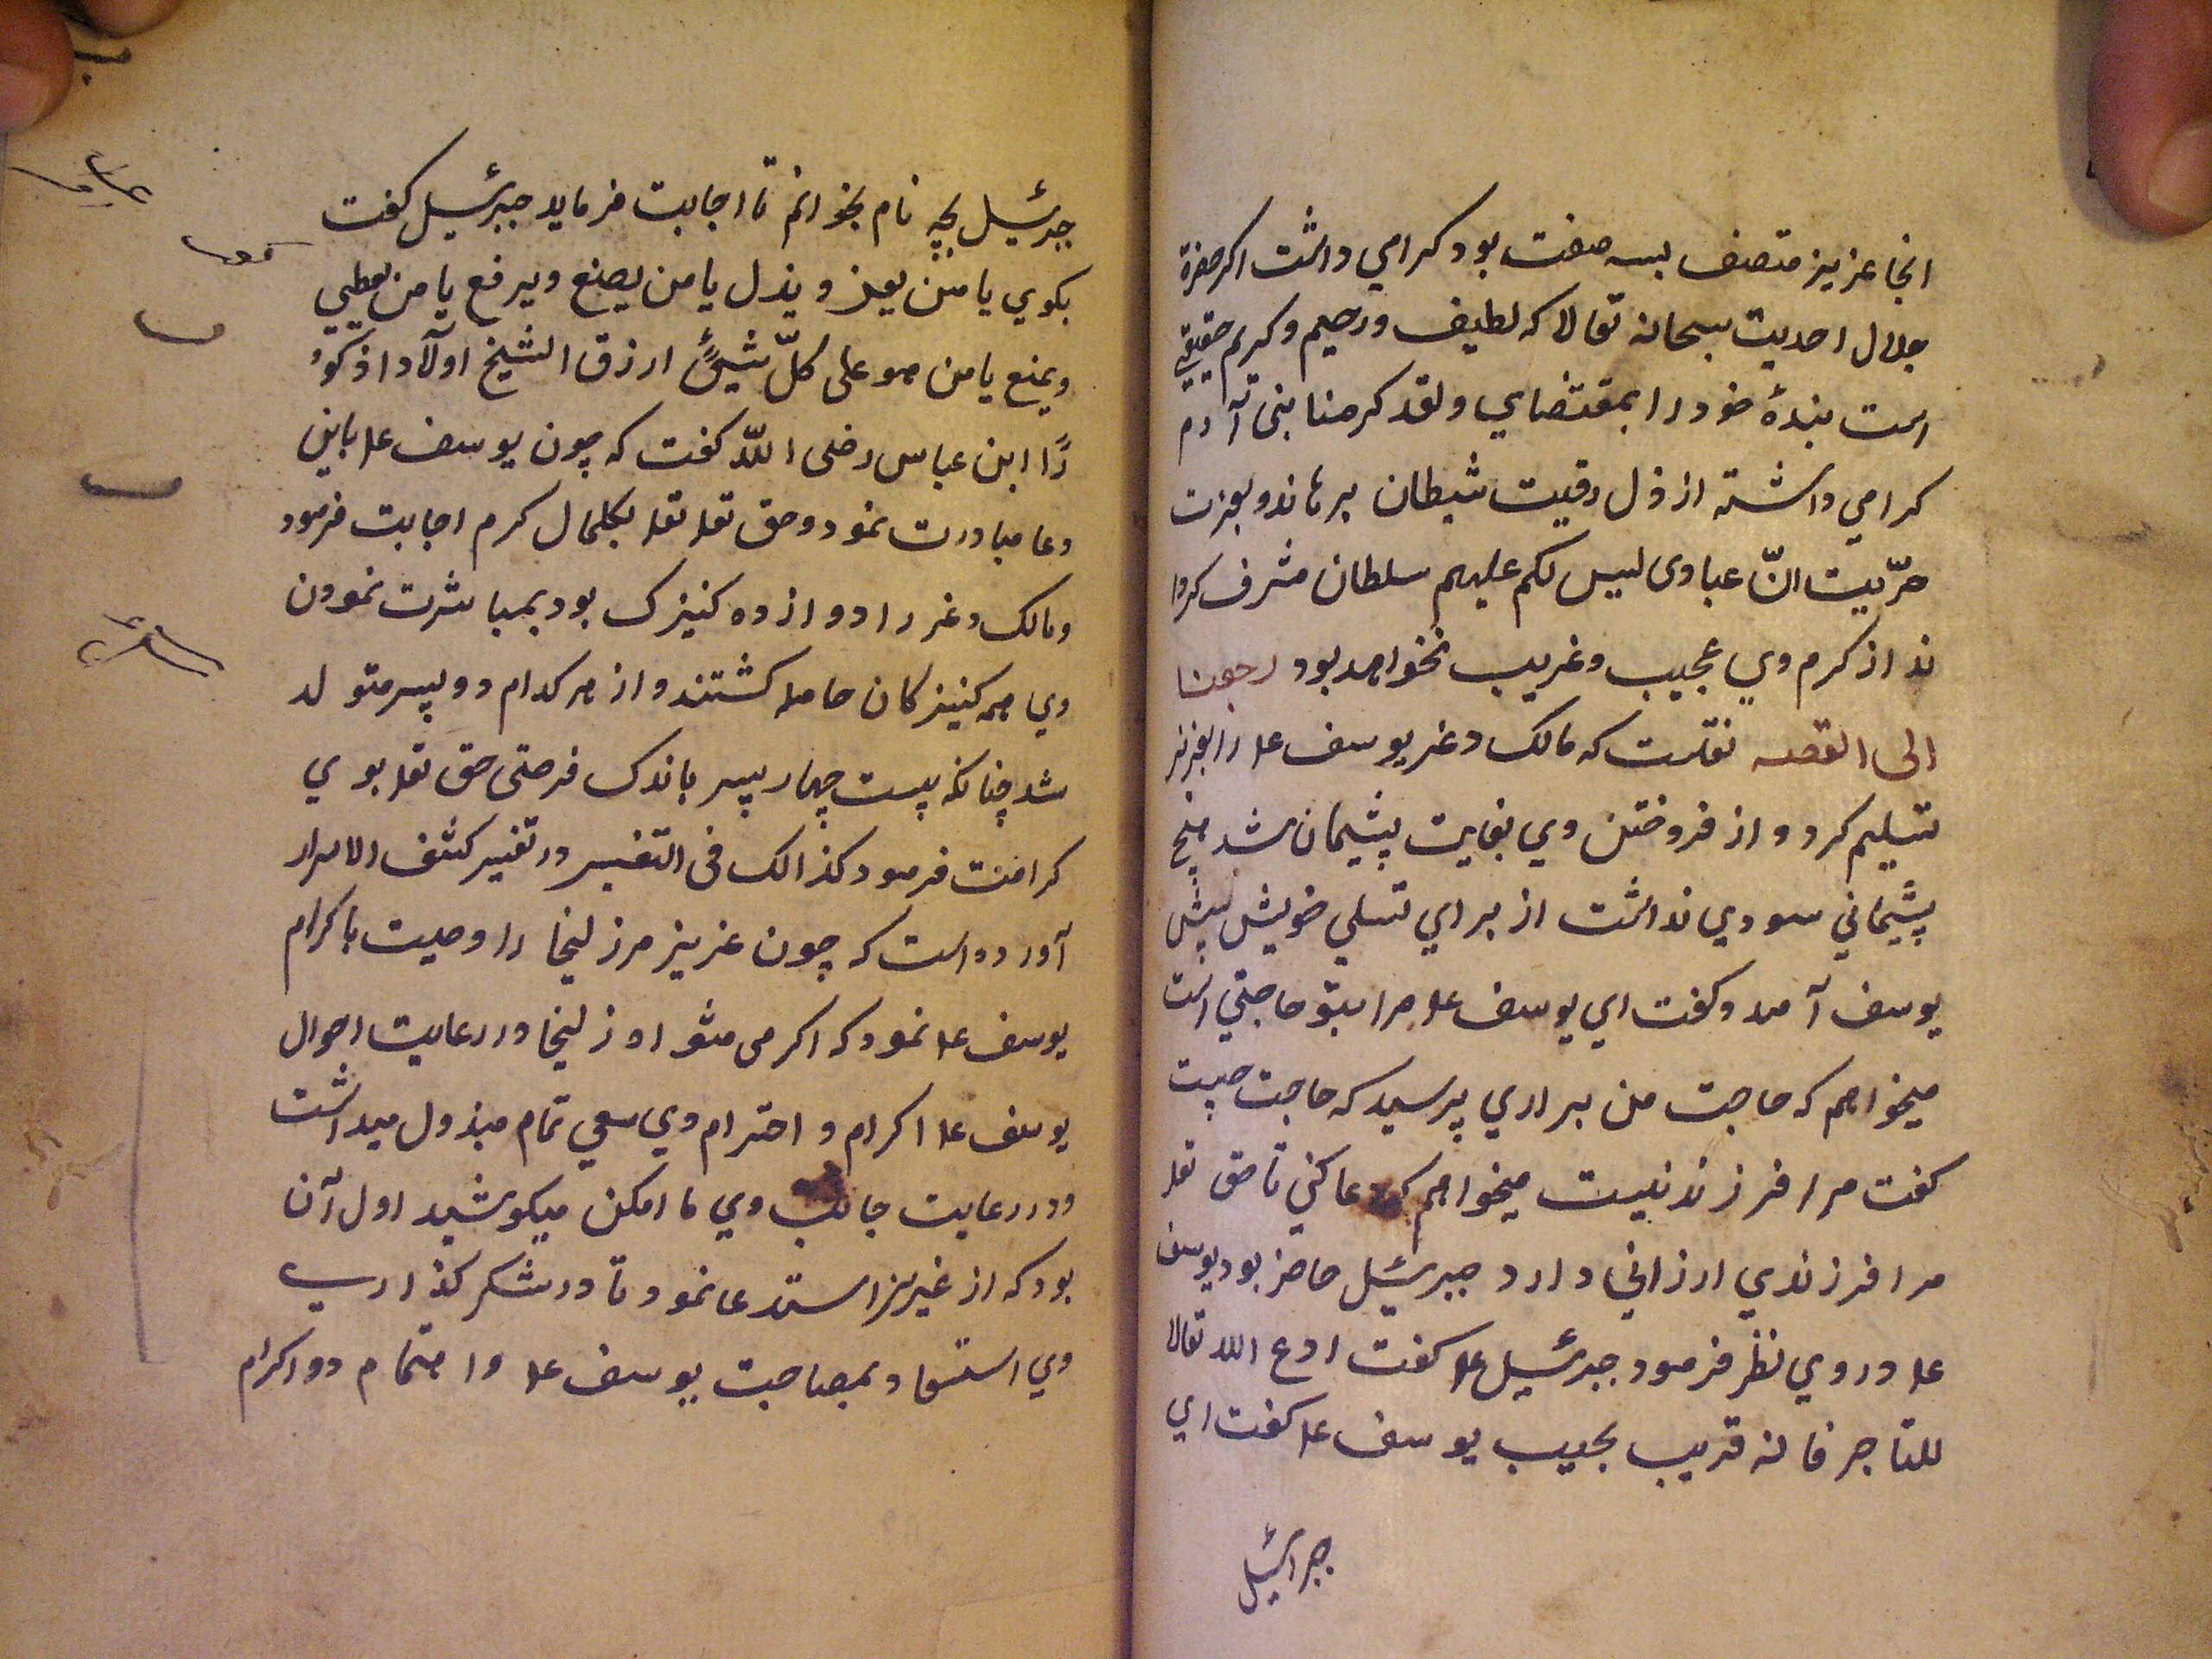 انجا عزیز متصف بسه صفت بود کرامي داشت اکر حضرة
جلال احدیت سبحانه تعالا که لطیف ورحیم وکریم حقیقي
است بندۀ خود را بمقتضاي ولقد کرمنا بنی آدم
کرامي داشته از ذل رقیت شیطان برهاند وبعزت
حرّیت انّ عبادی لیس لکم علیهم سلطان مشرف کردا
ند از کرم وي عجیب وغریب نخواهد بود رجعنا
الی القصه نقلست که مالک دغر یوسف علا را بعزیز
تسلیم کرد و از فروختن وي بغایت پشیمان شد هیچ
پشیماني سودي نداشت از براي تسلي خویش پیش
یوسف آمد وکفت اي یوسف علا مرا بتو حاجتي است
میخواهم که حاجت من براري پرسید که حاجت چیست
کفت مرا فرزند نیست میخواهم که دعا کني تا حق تعلا
مرا فرزندي ارزاني دارد جبرئیل حاضر بود یوسف
علا در وي نظر فرمود جبرئیل علا کفت ادع الله تعالا
للتاجر فانه قریب مجیب یوسف علا کفت اي
جبرائیل
جبرئیل بچه نام بخوانم تا اجابت فرماید جبرئیل کفت
بکوي یا من یعز ویذل یا من یضع ویرفع یا من یعطي
ویمنع یا من هو علی کلّ شيءٍ ارزق الشیخ اولآدا ذکو
رًا ابن عباس رضی اللّه کفت که چون یوسف علا باین
دعا مبادرت نمود وحق تعلا تعلا بکمال کرم اجابت فرمود
ومالک دغر را دوازده کنیزک بود بمباشرت نمودن
وي همه کنیزکان حامله کشتند واز هر کدام دو پسر متولد
شد چنانکه بیست چهار پسر باندک فرصتی حق تعلا بوي
کرامت فرمود کذالک فی التفسیر در تفسیر کشف الاسرار
آورده است که چون عزیز مر زلیخا را وصیت باکرام
یوسف علا نمود که اکرمی مثواه زلیخا در رعایت احوال
یوسف علا اکرام و احترام وي سعي تمام مبذول میداشت
ودر رعایت جانب وي ما امکن میکوشید اول آن
بود که از عزیز استدعا نمود تا در شکر کذاري
وي بمصاحبت یوسف علا واهتمام دو اکرام